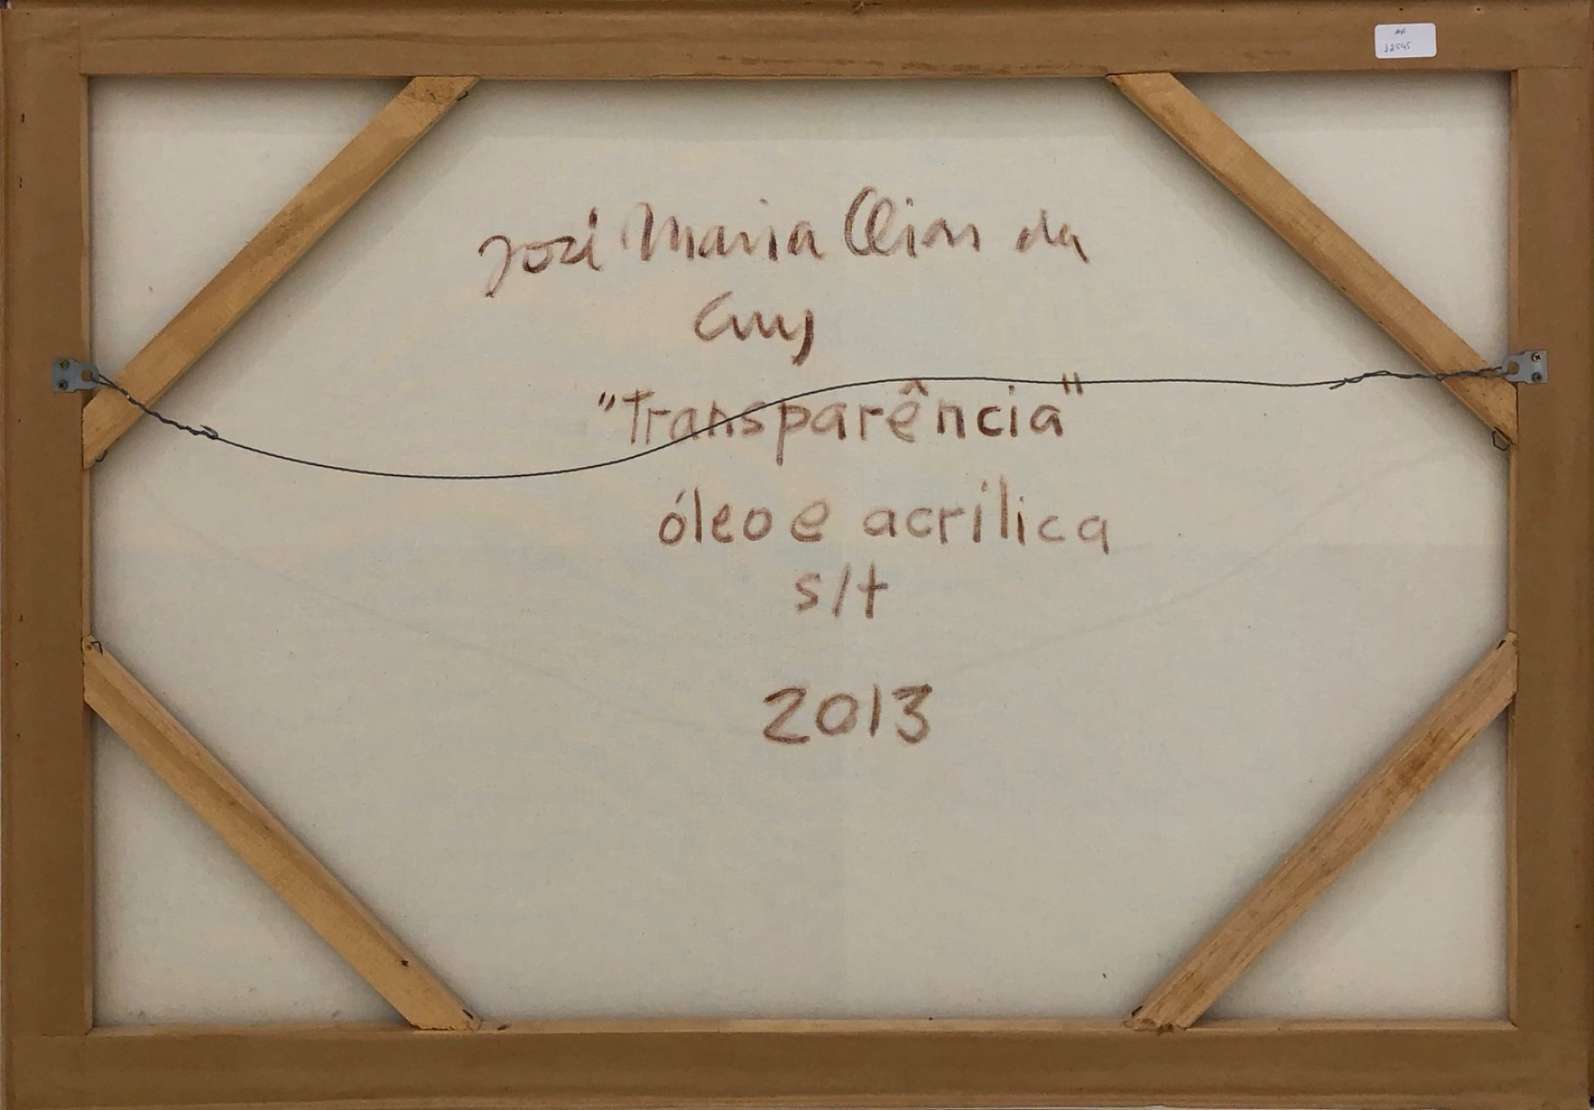 12545
José Maria Dias da
Cruz
"Transparência"
óleo e acrílica
s/t
2013